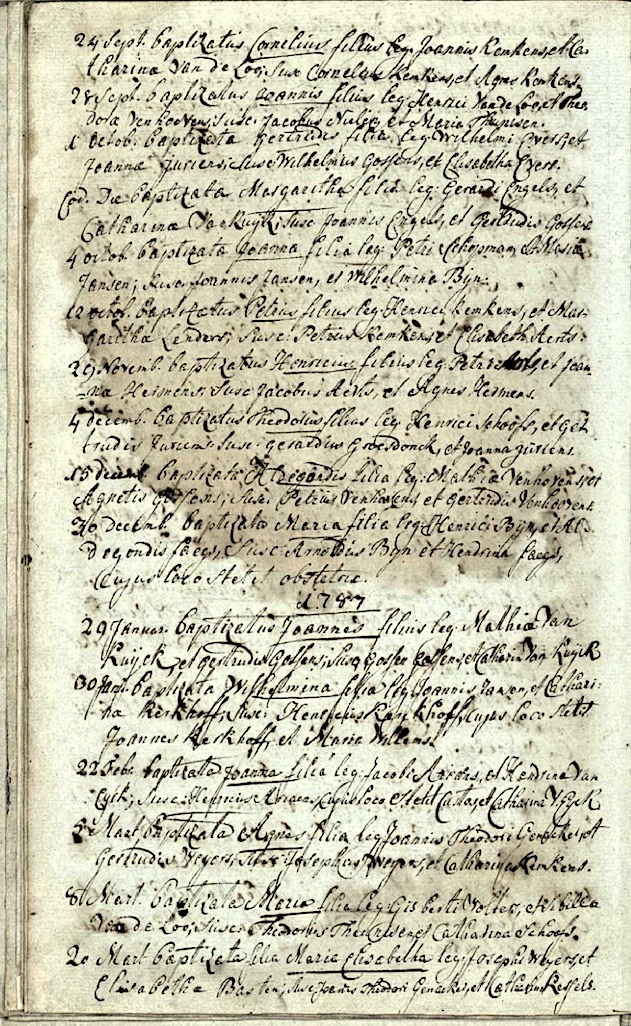 24 Sept. baptizatus Cornelius filius leg. Joannis Kemkens, et Ca-
tharina Van de Loo; Susc. Cornelius Kemkens, et Agnes Kemkens.
28 Sept. baptizatus Joannis filius leg: Henrici Van de Loo, et Theo-
dora Venhoevens; Susc: Jacobus et Maria Theunisen.
1 Octob. baptizata Gertrudis filia leg: Wilhelmi Evers, et
Joanna Juriens; Susc: Wilhelmus Gossens, et Elisabetha Evers.
Eod. Die baptizata Margaritha filia leg: Gerardi Engels, et
Catharina Van Kuyk; Susc Joannis Engels, et Gertrudis Gossens
4 octob. baptizata Joanna filia leg: Petri Schopman, et Maria
Jansen; Susc: Joannis Jansen, et Wilhelmina Bijn.
12 octob. baptizatus Petrus filius leg: Henrici Kemkens, et Mar-
garitha Lenders; Susc: Petrus Kemkens, et Elisabeth Aerts.
29 Novemb. baptizatus Henricus filius leg: Petri Aerts, et Joan-
na Hermens; Susc Jacobus Aerts, et Agnes Hermens.
4 decemb. baptizatus Theodorus filius leg: Henrici Schoofs, et Ger-
trudis Juriens: Susc: Gerardus Groesdonck, et Joanna Juriens.
15 decemb baptizata Aldegondis filia leg: Mathia Venhovens, et
Agnetis Gossens; Susc: Petrus Venhovens et Gertrudis Venhoevens.
30 decemb. baptizata Maria filia leg: Henrici Bijn, et Al-
degondis faegs, Susc: Arnoldus Bijn et Hendrina faegs,
Cujus loco stetit obstetrix.
1787
29 Januar. baptizatus Joannes filius leg: Mathia Van
Kuyck, et Gertrudis Gossens; Susc Gossen Gossens, et Catharin Van Kuyck
30 Jan: baptizata Wilhelmina filia leg. Joannis Jansen, et Cathari-
na Kerkhoff; Susc: Henricus Kerckhoff, Cujus loco stetit
Joannes Kerkhoff, et Maria Willems.
22 Feb. baptizata Joanna filia leg: Jacobi Ariens, et Hendrina Van
Eyck; Susc: Henricus Ariens, Cujus loco stetit Custos, et Catharina V. Eyck
5 Mart baptizata Agnes filia leg Joannis Theodori Genackes, et
Gertrudis Weyers, Susc: Josephus Weyers, et Catharina Kemkens.
8 Mart. baptizata Maria filia leg: Gisberti Wolters, et Sibilla
Van de Loo; Susc: Theodorus Theunisen, et Catharina Schoofs.
20 Mart baptizata filia Maria Elisabetha leg: Josephi Weyers, et
Elisabetha Basten; Susc Joannis Theodori Genackes, et Catharin Kessels.